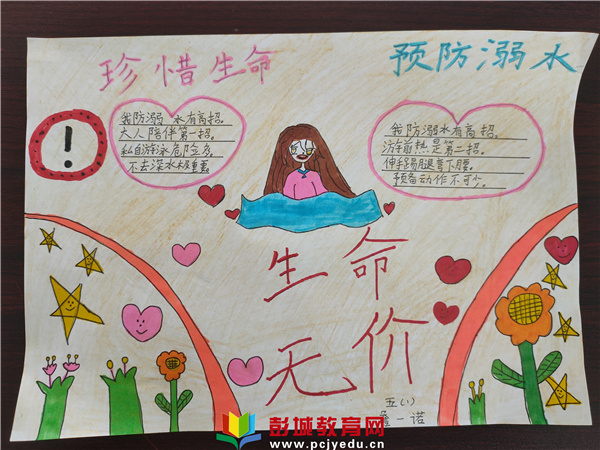 珍惜生命
预防溺水
!
我防溺水有高招。
大人陪伴第一招。
私自游泳危险多。
不去深水极重要。
我防溺水有高招。
泳前热是第二招。
伸手踢腿弯下腰。
预备动作不可少。
生命
无价
五(1)
一诺
彭城教育网
www.pcjyedu.cn